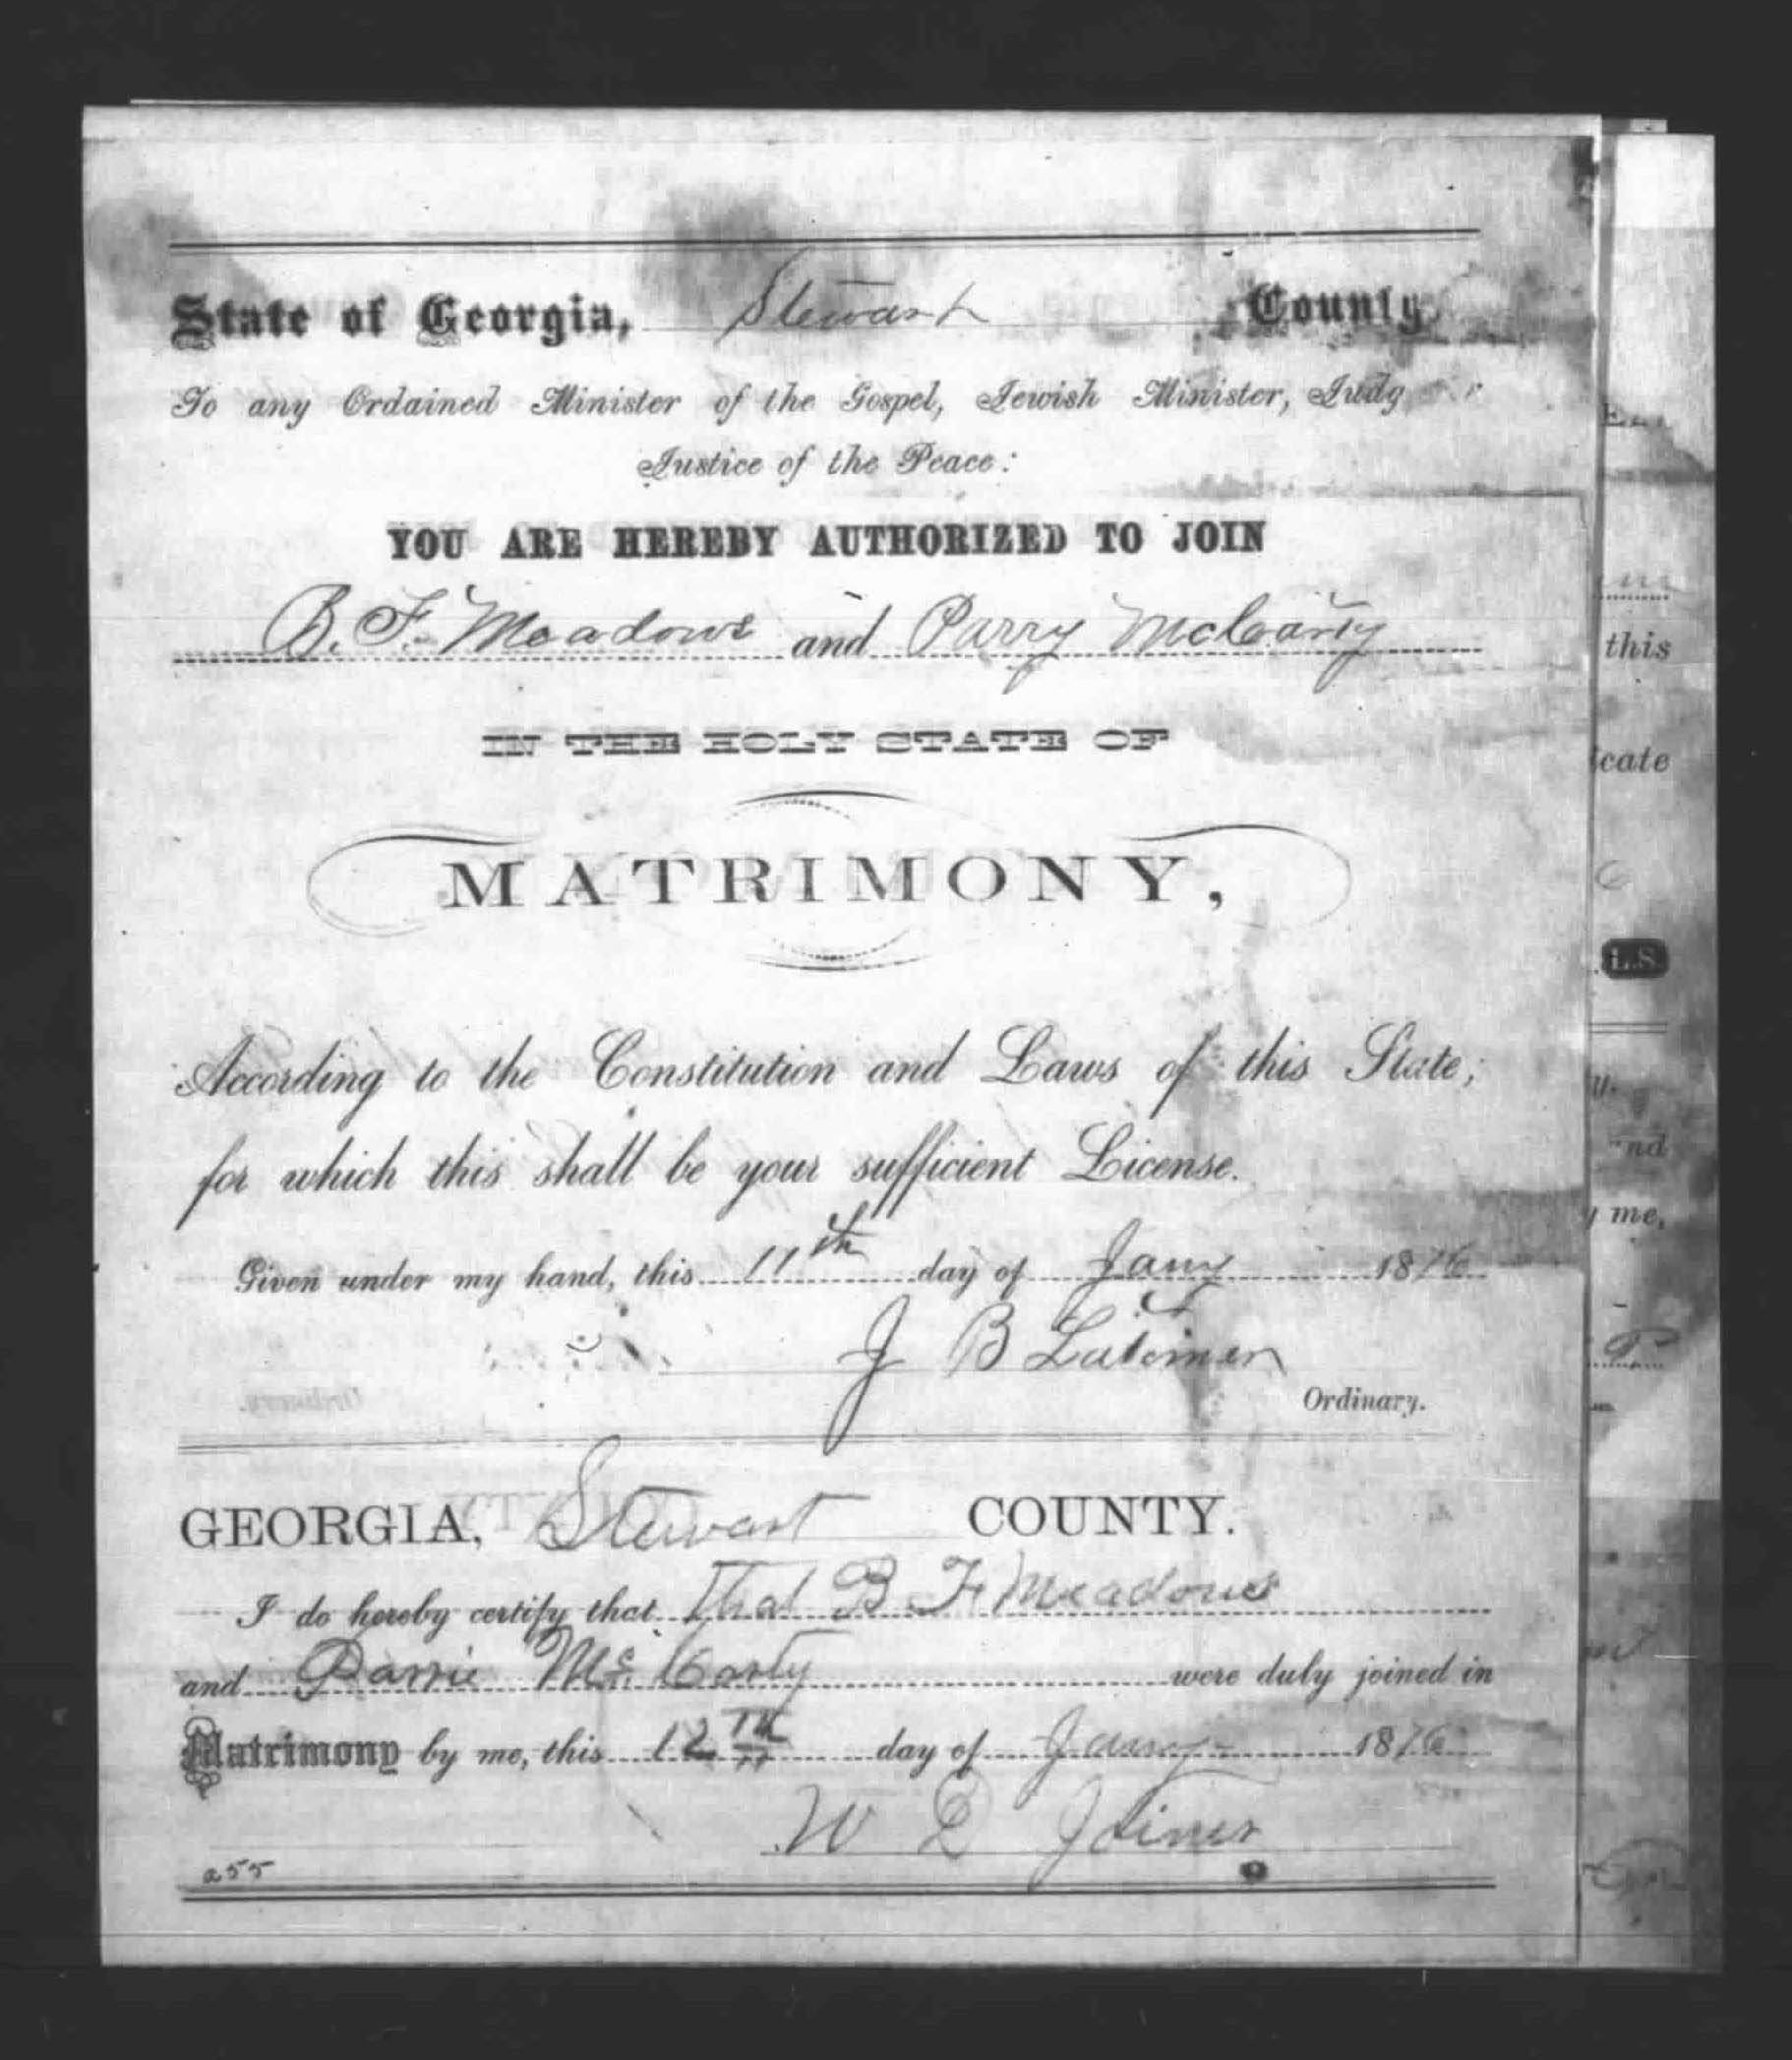 State of Georgia, Stewart County.
To any Ordained Minister of the Gospel, Jewish Minister, Judg
Justice of the Peace:
YOU ARE HEREBY AUTHORIZED TO JOIN
B. F. Meadows and Parry McCarty
IN THE HOLY STATE OF
MATRIMONY,
According to the Constitution and Laws of this State;
for which this shall be your sufficient License.
Given under my hand, this 11th day of Jany 1876
J B Latimer
Ordinary.
GEORGIA, Stewart COUNTY.
I do hereby certify that That B F Meadows
and Parrie Mc Carty were duly joined in
Matrimony by me, this 12th day of Jany 1876
W D Joiner
255
this
icate
L.S.
nd
me,